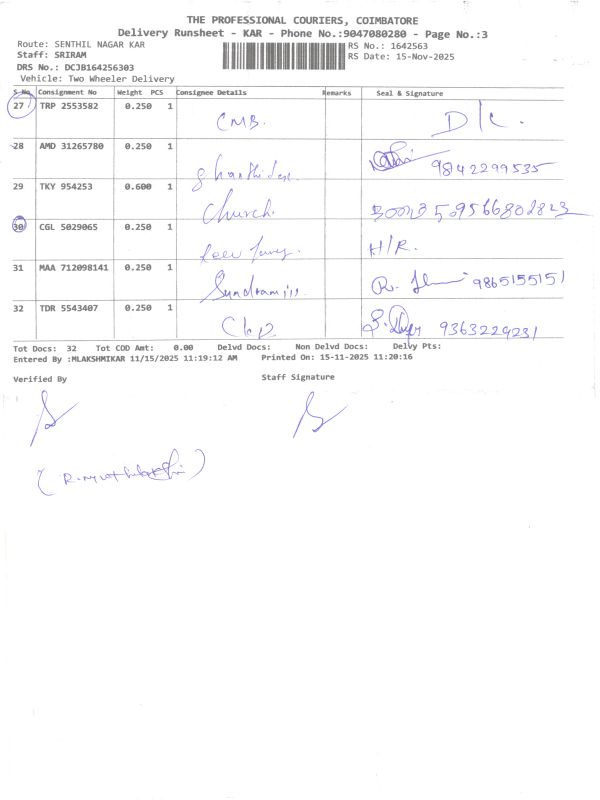 THE PROFESSIONAL COURIERS, COIMBATORE
Delivery Runsheet - KAR - Phone No.:9047080280 - Page No.:3
Route: SENTHIL NAGAR KAR RS No.: 1642563
Staff: SRIRAM RS Date: 15-Nov-2025
DRS No.: DCJB164256303
Vehicle: Two Wheeler Delivery
S No. Consignment No Weight PCS Consignee Details Remarks Seal & Signature
27 TRP 2553582 0.250 1 CMB. D/C.
28 AMD 31265780 0.250 1 9842299535
29 TKY 954253 0.600 1 Church.
30 CGL 5029065 0.250 1 H/R.
31 MAA 712098141 0.250 1 9865155151
32 TDR 5543407 0.250 1 9363229231
Tot Docs: 32 Tot COD Amt: 0.00 Delvd Docs: Non Delvd Docs: Delvy Pts:
Entered By :MLAKSHMIKAR 11/15/2025 11:19:12 AM Printed On: 15-11-2025 11:20:16
Verified By Staff Signature